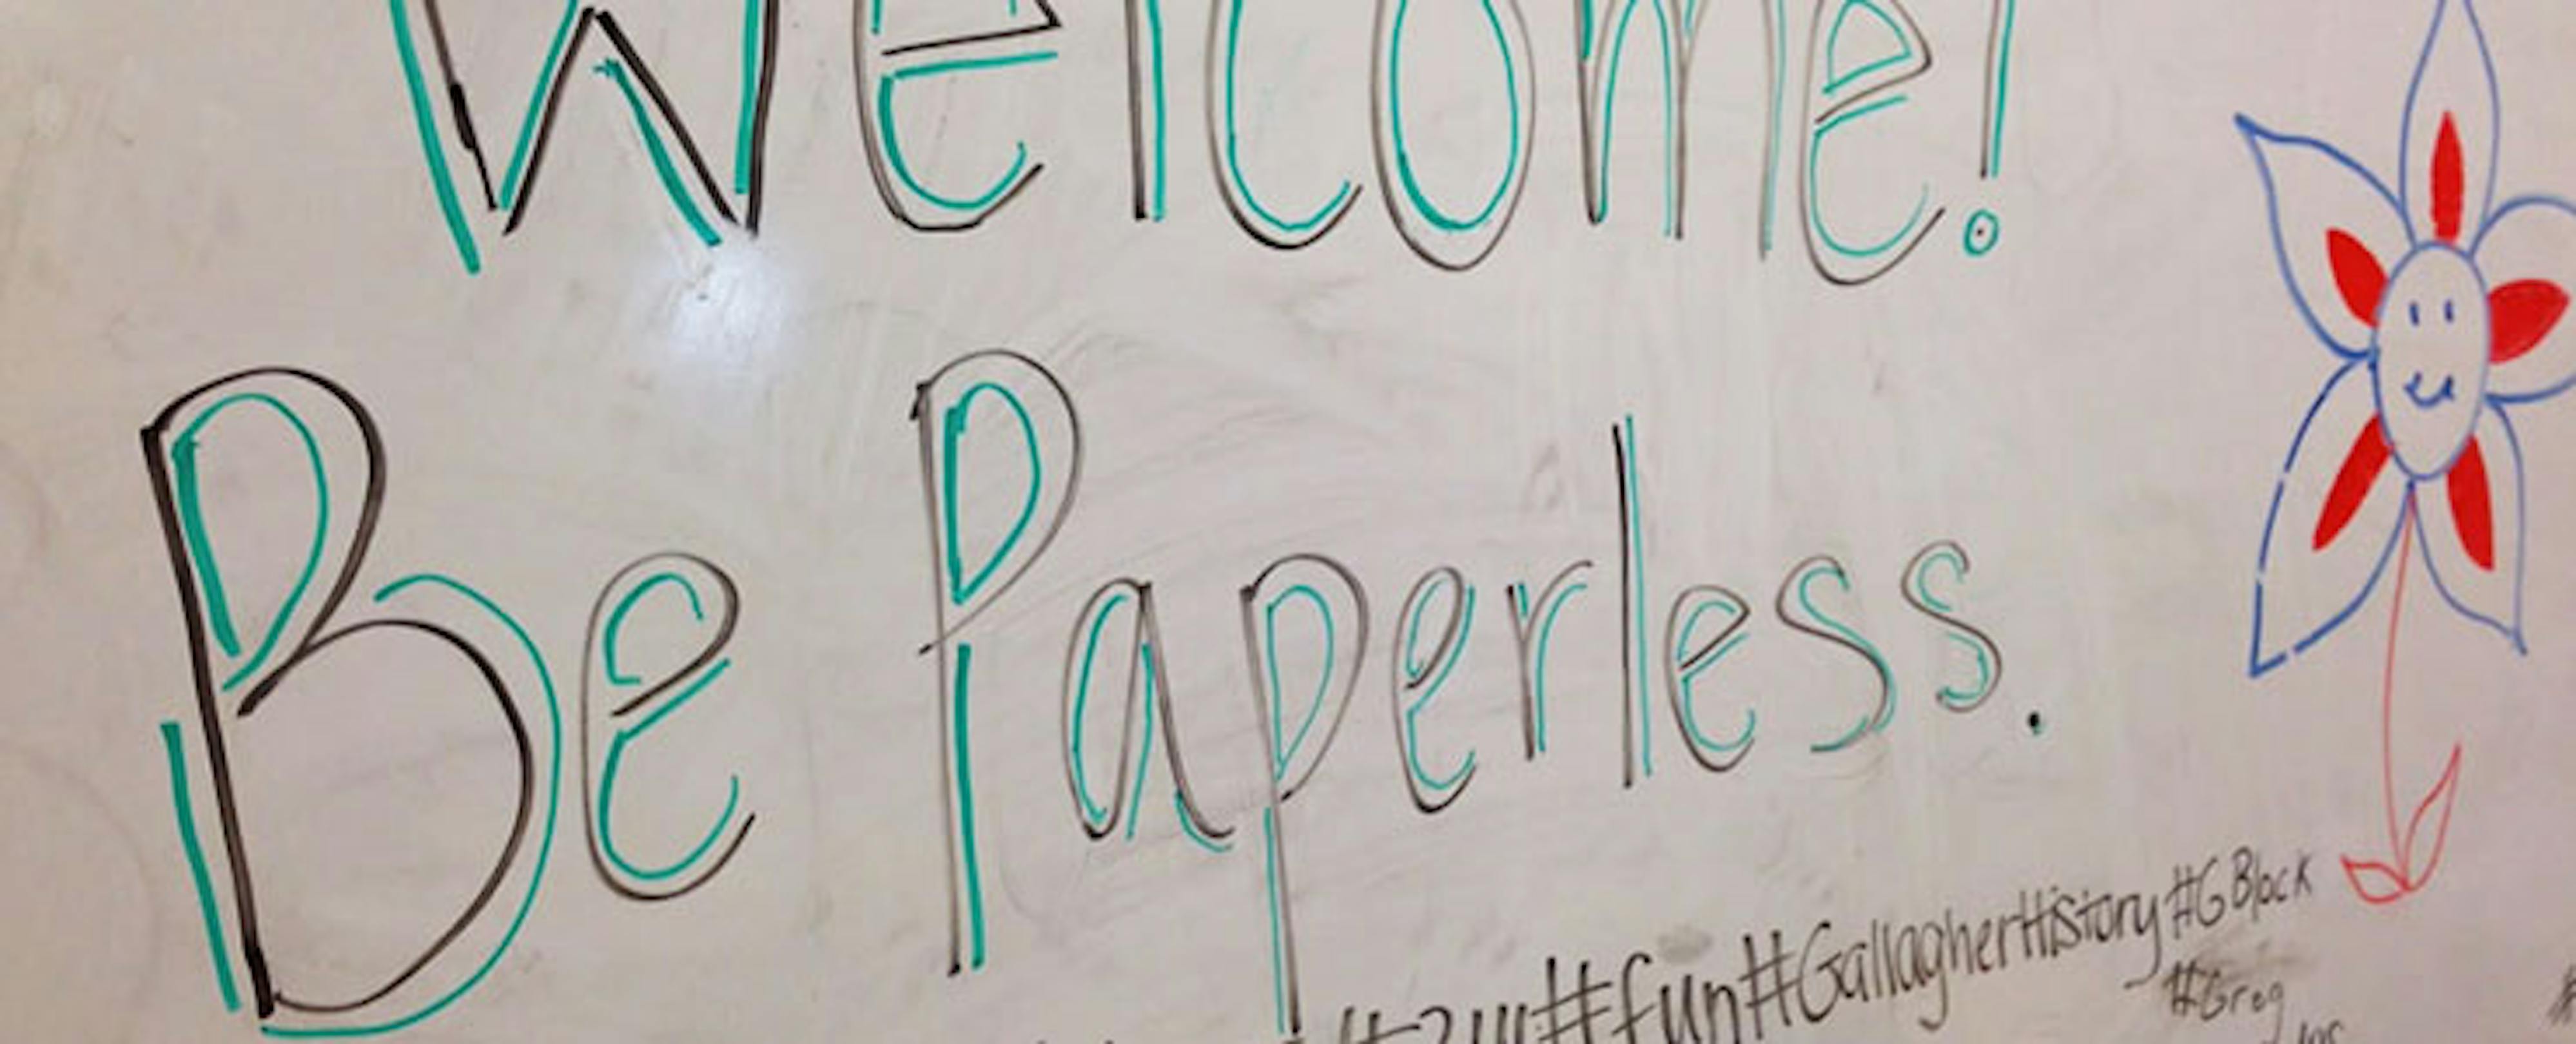 Welcome!
Be Paperless.
#fun#GallagherHistory#GBlock
#Greg